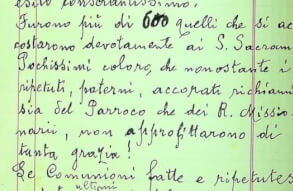 esito consolantissimo.
Furono più di 600 quelli che si ac
costarono devotamente ai S. Sacram
Pochissimi coloro, che nonostante i
ripetuti, paterni, accorati richiami
sia del Parroco che dei R. Missio
narii, non approfittarono di
tanta grazia!
Le Comunioni fatte e ripetutes
ultimi